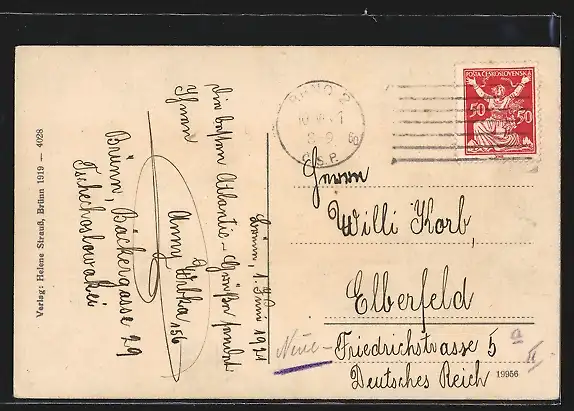 Verlag: Helene Strauß, Brünn 1919 — 4028
Brünn, 1. Juni 1921
Die besten Atlantis-Grüße sendet
Ihnen
Anny
156
Brünn, Bäckergasse 29
Tschechoslowakei
POŠTA ČESKOSLOVENSKÁ
50 50
BRNO 2
Č.S.P.
Herrn
Willi Korb,
Elberfeld
Neue-Friedrichstrasse 5 a
II
Deutsches Reich
19956